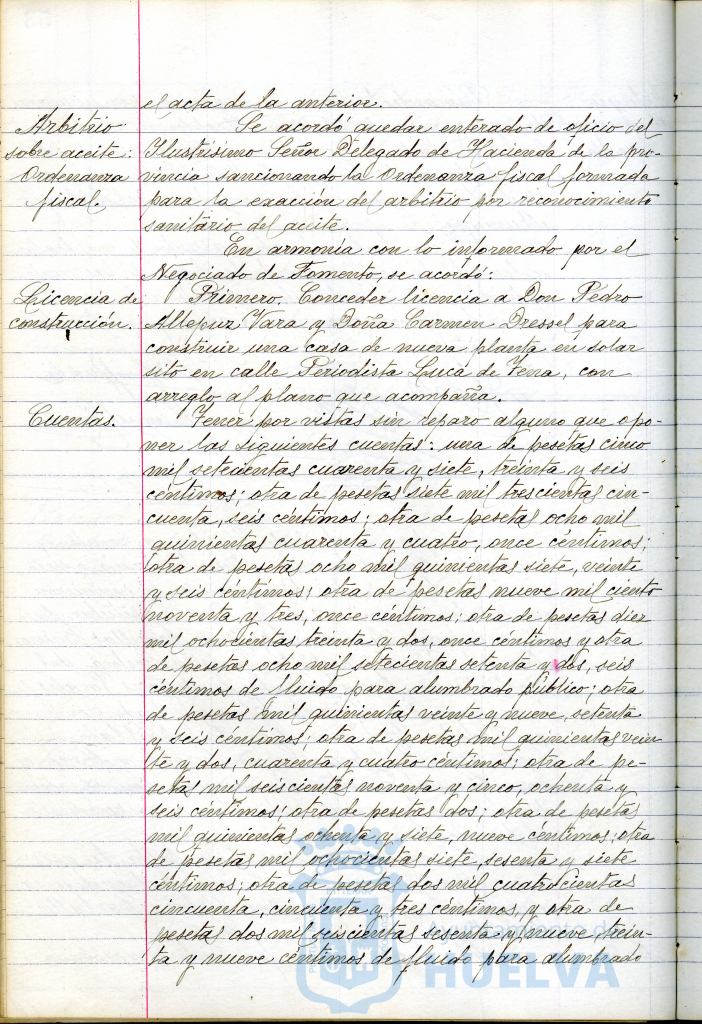 el acta de la anterior.
Arbitrio
sobre aceite:
Ordenanza
fiscal.
Se acordó quedar enterado de oficio del
Ilustrísimo Señor Delegado de Hacienda de la pro-
vincia sancionando la Ordenanza fiscal formada
para la exacción del arbitrio por reconocimiento
sanitario del aceite.
En armonía con lo informado por el
Negociado de Fomento, se acordó:
Licencia de
construcción.
Primero. Conceder licencia a Don Pedro
Allepuz Vara y Doña Carmen Dressel para
construir una casa de nueva planta en solar
sito en calle Periodista Luca de Tena, con
arreglo al plano que acompaña.
Cuentas.
Tener por vistas sin reparo alguno que opo-
ner las siguientes cuentas: una de pesetas cinco
mil setecientas cuarenta y siete, treinta y seis
céntimos; otra de pesetas siete mil trescientas cin-
cuenta, seis céntimos; otra de pesetas ocho mil
quinientas cuarenta y cuatro, once céntimos;
otra de pesetas ocho mil quinientas siete, veinte
y seis céntimos; otra de pesetas nueve mil ciento
noventa y tres, once céntimos; otra de pesetas diez
mil ochocientas treinta y dos, once céntimos y otra
de pesetas ocho mil setecientas setenta y dos, seis
céntimos de fluido para alumbrado público; otra
de pesetas mil quinientas veinte y nueve, setenta
y seis céntimos; otra de pesetas mil quinientas vein-
te y dos, cuarenta y cuatro céntimos; otra de pe-
setas mil seiscientas noventa y cinco, ochenta y
seis céntimos; otra de pesetas dos; otra de pesetas
mil quinientas ochenta y siete, nueve céntimos; otra
de pesetas mil ochocientas siete, sesenta y siete
céntimos; otra de pesetas dos mil cuatrocientas
cincuenta, cincuenta y tres céntimos, y otra de
pesetas dos mil seiscientas sesenta y nueve, trein-
ta y nueve céntimos de fluido para alumbrado
HUELVA